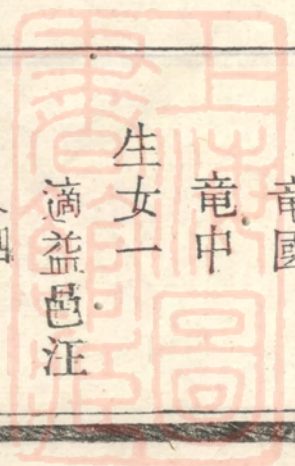 竜國
竜中
生女一
適益邑汪